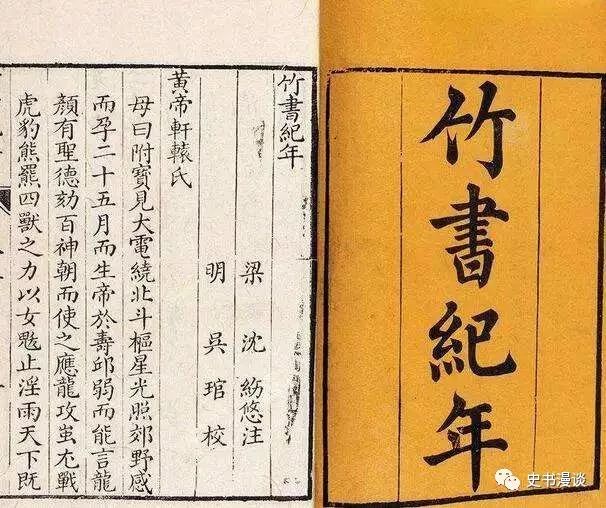 竹書紀年
竹書紀年
梁 沈 約悠注
明 吳 琯 校
黃帝軒轅氏
母曰附寶見大電繞北斗樞星光照郊野感
而孕二十五月而生帝於壽邱弱而能言龍
顏有聖德劾百神朝而使之應龍攻蚩尤戰
虎豹熊羆四獸之力以女魃止淫雨天下既
史书漫谈